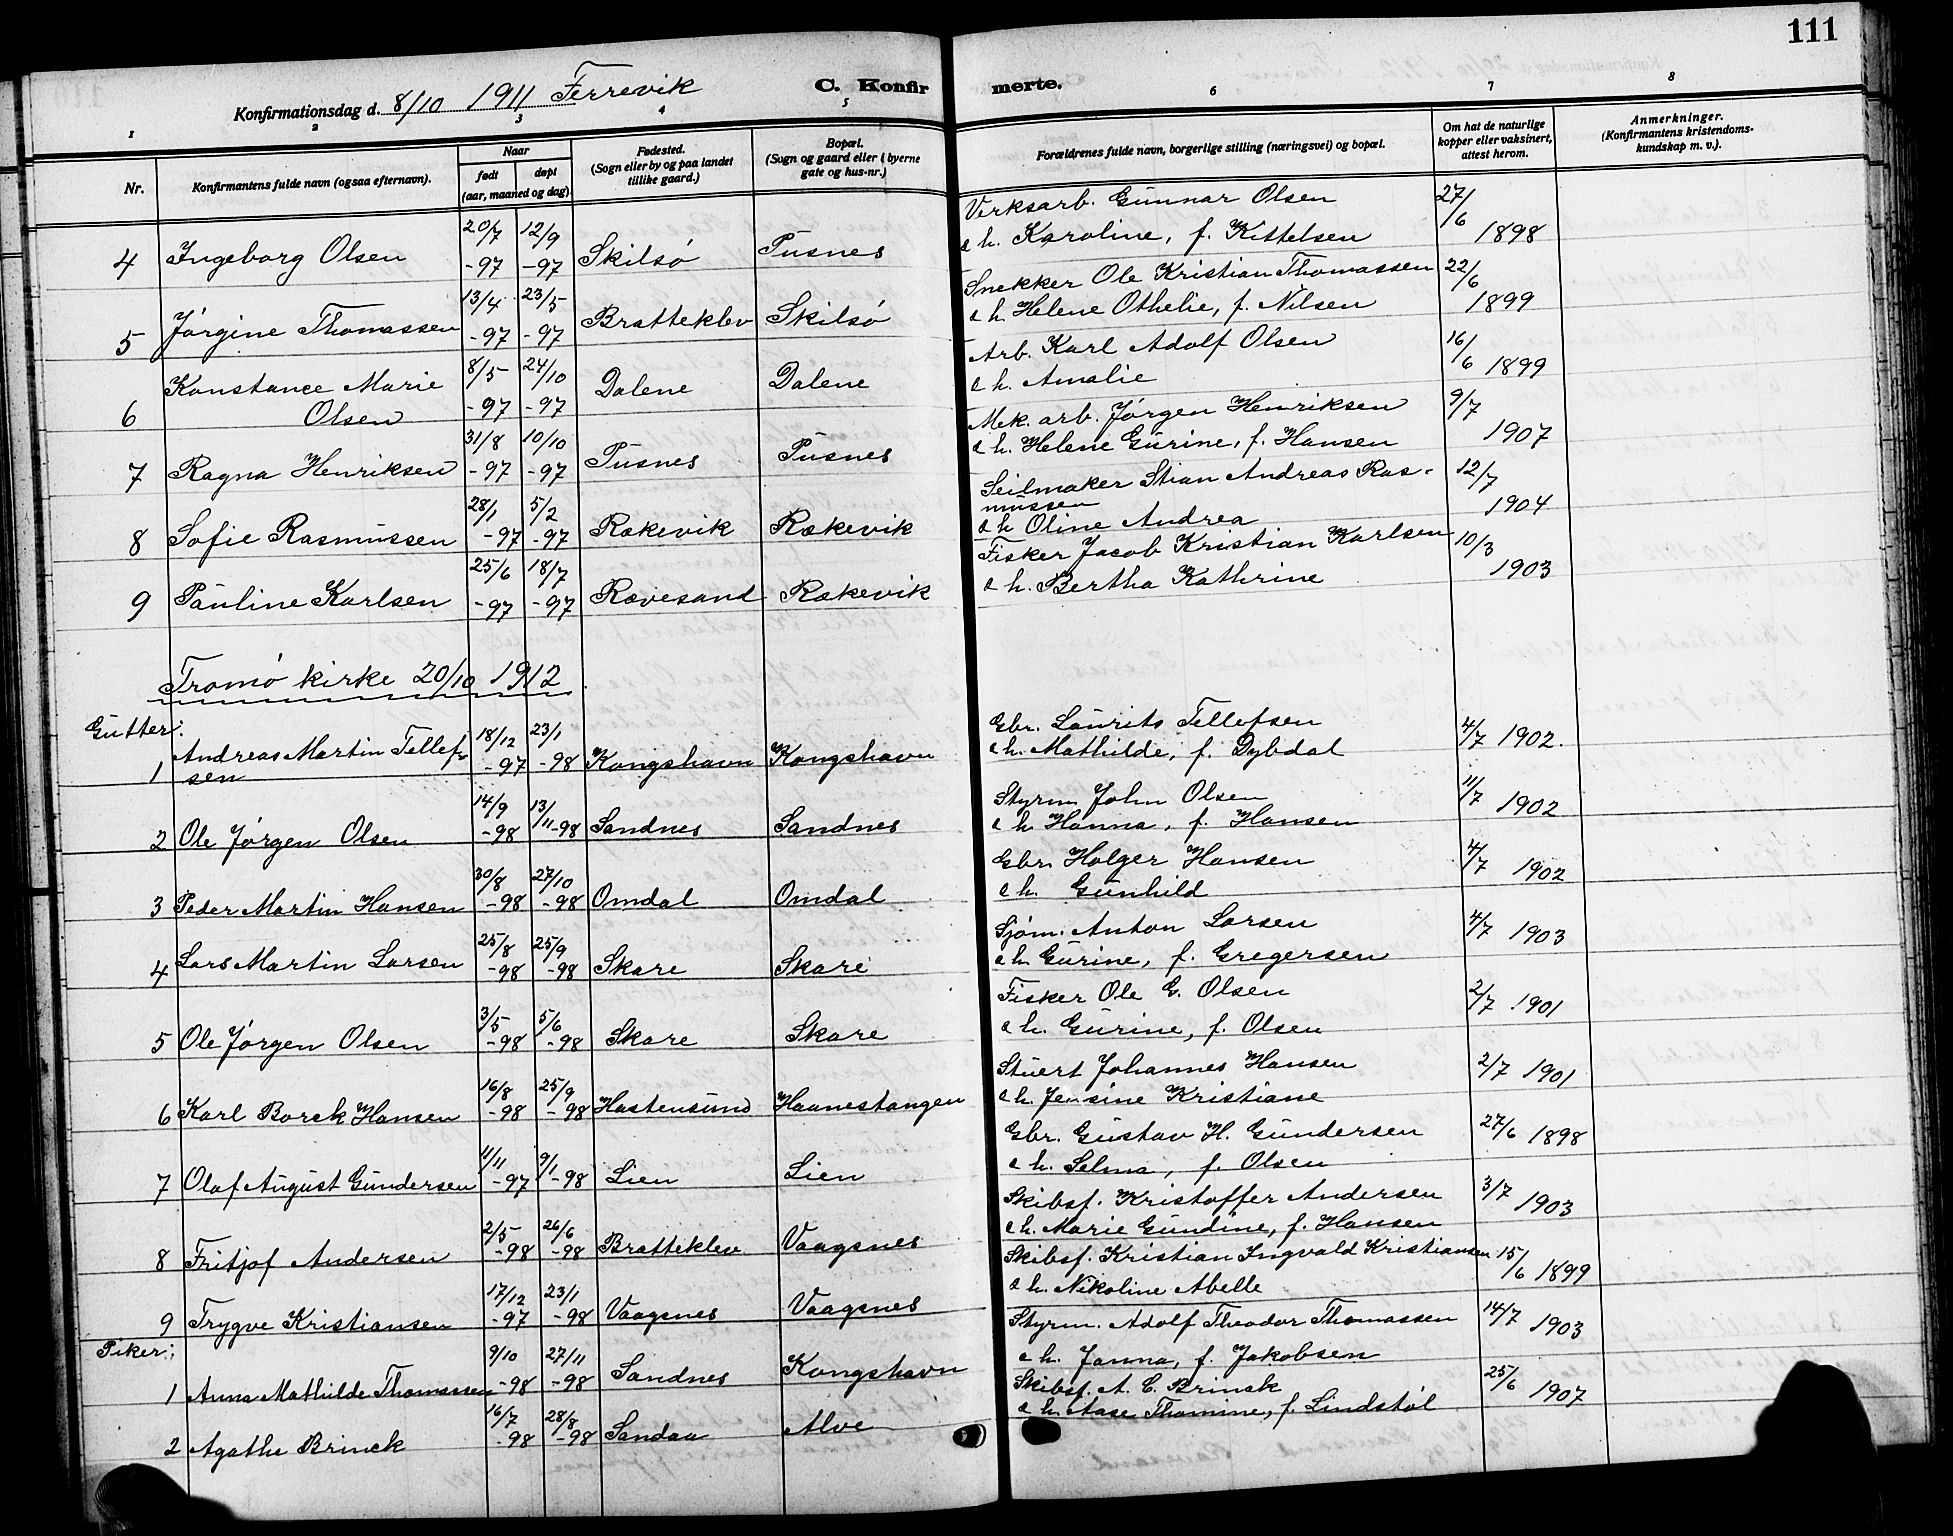 111
Konfirmationsdag d. 8/10 1911 Ferrevik
C. Konfirmerte.
1 2 3 4 5 6 7 8
Nr.
Konfirmantens fulde navn (ogsaa efternavn).
Naar
født døpt
(aar, maaned og dag)
Fødested.
(Sogn eller by og paa landet
tillike gaard.)
Bopæl.
(Sogn og gaard eller i byerne
gate og hus-nr.)
Forældrenes fulde navn, borgerlige stilling (næringsvei) og bopæl.
Om hat de naturlige
kopper eller vaksinert,
attest herom.
Anmerkninger.
(Konfirmantens kristendoms-
kundskap m. v.).
4 Ingeborg Olsen 20/7 -97 12/9 -97 Skilsø Pusnes Verksarb. Gunnar Olsen
& h. Karoline, f. Kittelsen 27/6 1898
5 Jørgine Thomassen 13/4 -97 23/5 -97 Bratteklev Skilsø Snekker Ole Kristian Thomassen
& h. Helene Othelie, f. Nilsen 22/6 1899
6 Konstance Marie
Olsen 8/5 -97 24/10 -97 Dalene Dalene Arb. Karl Adolf Olsen
& h. Amalie 16/6 1899
7 Ragna Henriksen 31/8 -97 10/10 -97 Pusnes Pusnes Mek. arb. Jørgen Henriksen
& h. Helene Gurine, f. Hansen 9/7 1907
8 Sofie Rasmussen 28/1 -97 5/2 -97 Rækevik Rækevik Seilmaker Stian Andreas Ras-
mussen
& h Oline Andrea 12/7 1904
9 Pauline Karlsen 25/6 -97 18/7 -97 Rævesand Rækevik Fisker Jacob Kristian Karlsen
& h. Bertha Kathrine 10/3 1903
Tromø kirke 20/10 1912
Gutter:
1 Andreas Martin Tellef-
sen 18/12 -97 23/1 -98 Kongshavn Kongshavn Gbr. Laurits Tellefsen
& h. Mathilde, f. Dybdal 4/7 1902.
2 Ole Jørgen Olsen 14/9 -98 13/11 -98 Sandnes Sandnes Styrm. John Olsen
& h Hanna, f. Hansen 11/7 1902
3 Peder Martin Hansen 30/8 -98 27/10 -98 Omdal Omdal Gbr. Holger Hansen
& h. Gunhild 4/7 1902
4 Lars Martin Larsen 25/8 -98 25/9 -98 Skare Skare Sjøm. Anton Larsen
& h. Gurine, f. Gregersen 4/7 1903
5 Ole Jørgen Olsen 3/5 -98 5/6 -98 Skare Skare Fisker Ole G. Olsen
& h. Gurine, f. Olsen 2/7 1901
6 Karl Borck Hansen 16/8 -98 25/9 -98 Hastensund Haanestangen Stuert Johannes Hansen
& h. Jensine Kristiane 2/7 1901
7 Olaf August Gundersen 11/11 -97 9/1 -98 Lien Lien Gbr. Gustav H. Gundersen
& h. Selma, f. Olsen 27/6 1898
8 Fritjof Andersen 2/5 -98 26/6 -98 Bratteklev Vaagsnes Skibsf. Kristoffer Andersen
& h. Marie Gundine, f. Hansen 3/7 1903
9 Trygve Kristiansen 17/12 -97 23/1 -98 Vaagsnes Vaagsnes Skibsf. Kristian Ingvald Kristiansen
& h. Nikoline Abelle 15/6 1899
Piker:
1 Anna Mathilde Thomassen 9/10 -98 27/11 -98 Sandnes Kongshavn Styrm. Adolf Theodor Thomassen
& h. Janna, f. Jakobsen 14/7 1903
2 Agathe Brinck 16/7 -98 28/8 -98 Sandaa Alve Skibsf. A. C. Brinck
& h. Aase Thomine, f. Lindstøl 25/6 1907